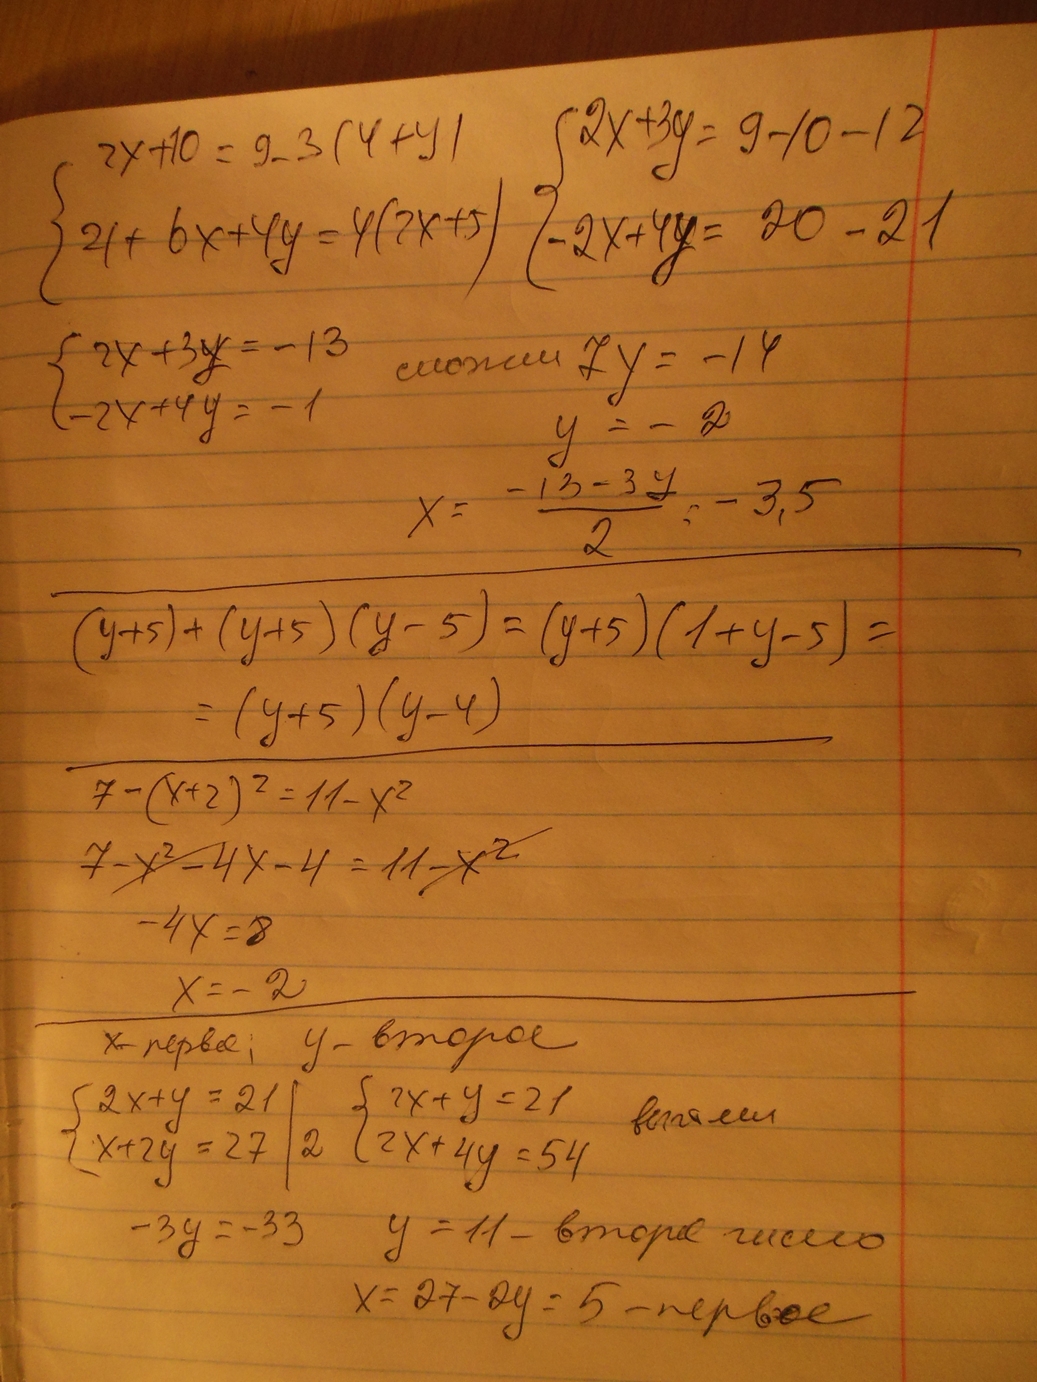 2x+10 = 9-3(4+y)
21+6x+4y=4(2x+5)
2x+3y= 9-10-12
-2x+4y= 20-21
2x+3y=-13
-2x+4y=-1
сложим 7y=-14
y=-2
x= (-13-3y)/2 = -3,5
(y+5)+(y+5)(y-5)=(y+5)(1+y-5)=
=(y+5)(y-4)
7-(x+2)²=11-x²
7-x²-4x-4=11-x²
-4x=8
x=-2
x-первое; y-второе
2x+y=21
x+2y=27 | 2
2x+y=21
2x+4y=54
вычтем
-3y=-33
y=11-второе число
x=27-2y=5-первое